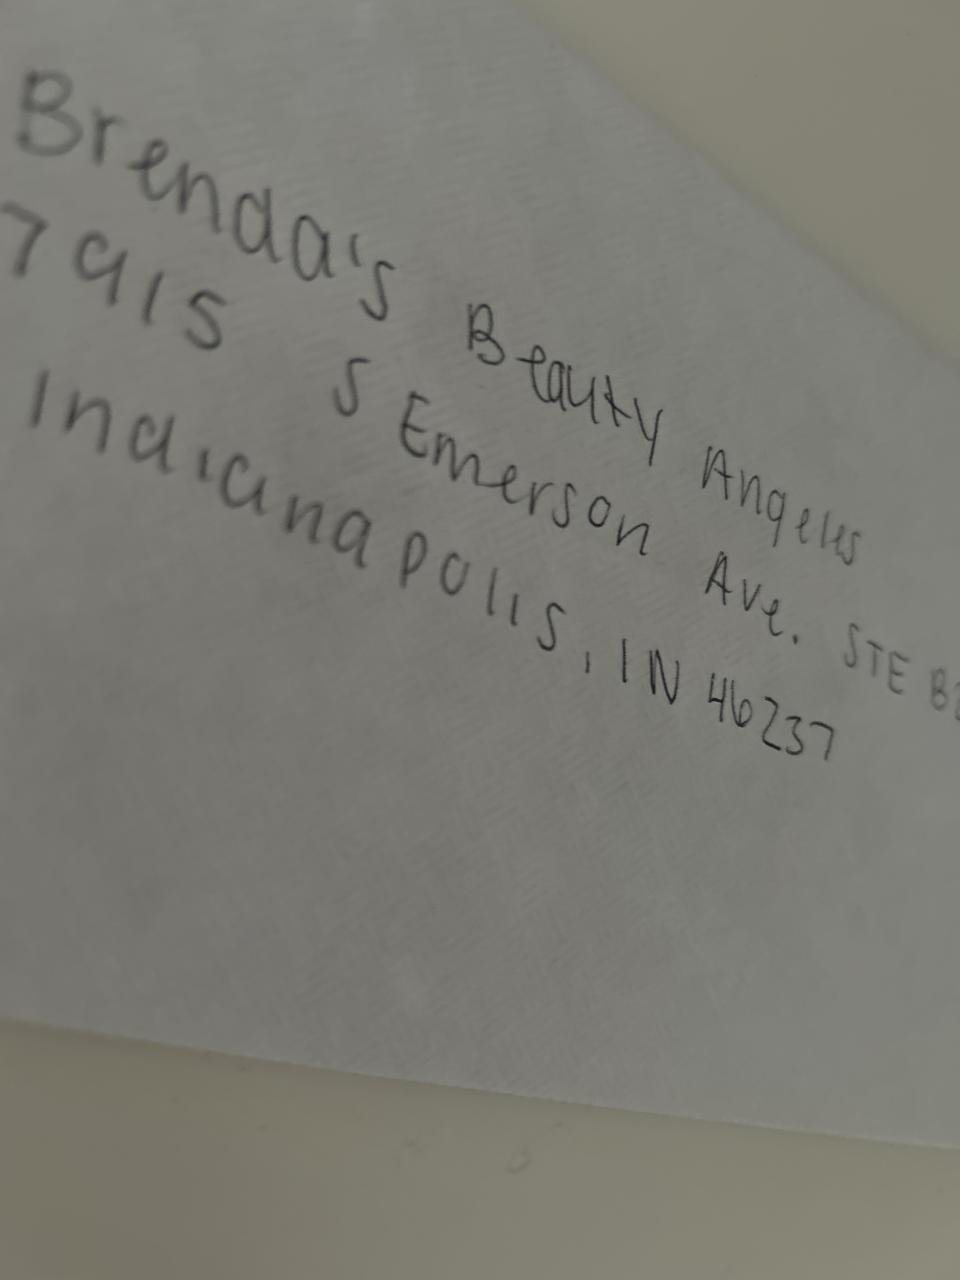 Brenda's Beauty Angeles
7915 S Emerson Ave. STE
Indianapolis, IN 46237